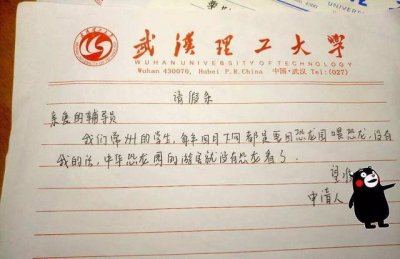 武汉理工大学
WUHAN UNIVERSITY OF TECHNOLOGY
Wuhan 430070, Hubei P.R.China 中国·武汉 Tel:(027)
请假条
亲爱的辅导员
我们常州的学生,每年四月下旬都是要回恐龙园喂恐龙,没有
我的话,中华恐龙园的游客就没有恐龙看了。
望
申请人